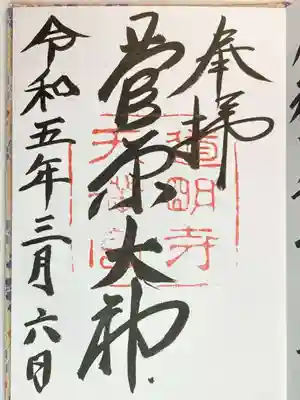 奉拝
菅原大神
道明寺
天満宮
令和五年三月六日